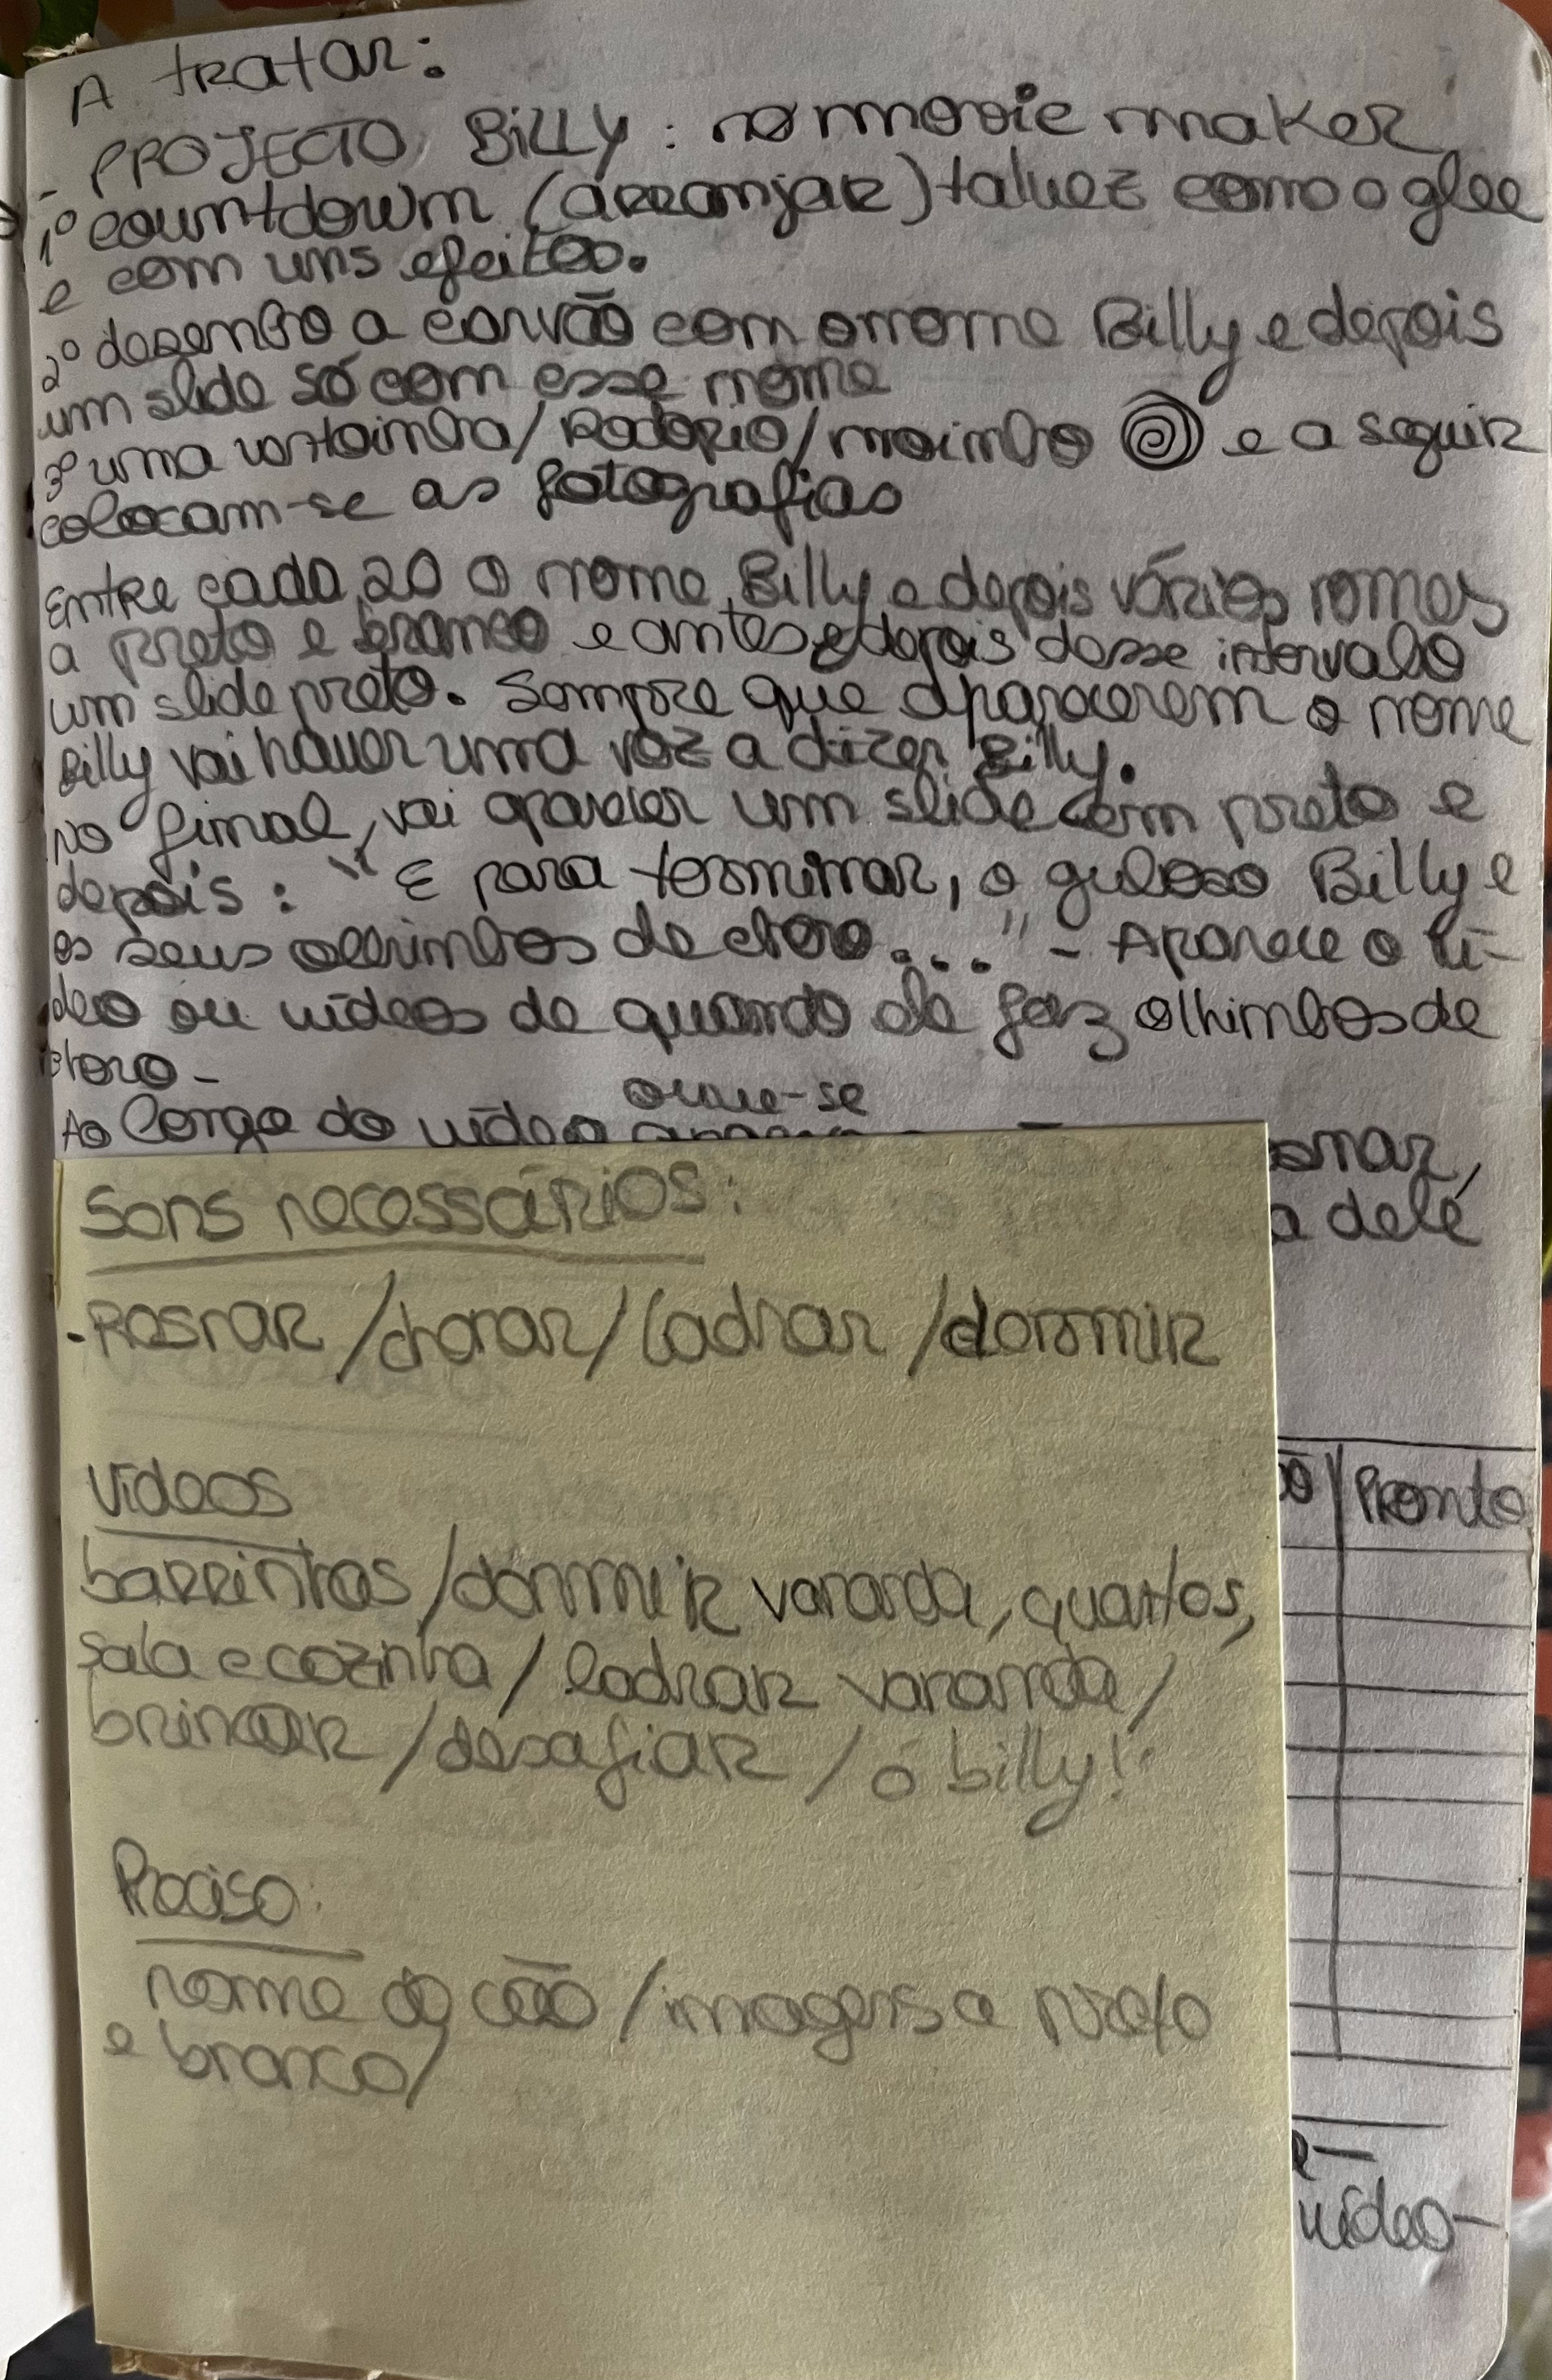 A tratar:
- PROJECTO Billy: no movie maker
1º countdown (arranjar) talvez como o glee
e com uns efeitos.
2º desenho a carvão com o nome Billy e depois
um slide só com esse nome
3º uma ventoinha/Rodopio/moinho e a seguir
colocam-se as fotografias
Entre cada 20 o nome Billy e depois vários nomes
a preto e branco e antes e depois desse intervalo
um slide preto. Sempre que aparecerem o nome
Billy vai haver uma voz a dizer Billy.
No final, vai aparecer um slide em preto e
depois: "E para terminar, o guloso Billy e
os seus olhinhos de choro..." - Aparece o ví-
deo ou vídeos de quando ele faz olhinhos de
choro-
ouve-se
Ao longo do vídeo
a dele
Sons necessários:
- Rosnar / chorar / ladrar / dormir
Vídeos
barrinhas / dormir varanda, quartos,
sala e cozinha / ladrar varanda /
brincar / desafiar / ó billy!
Preciso:
nome do cão / imagens a preto
e branco/
Pronto
vídeo-